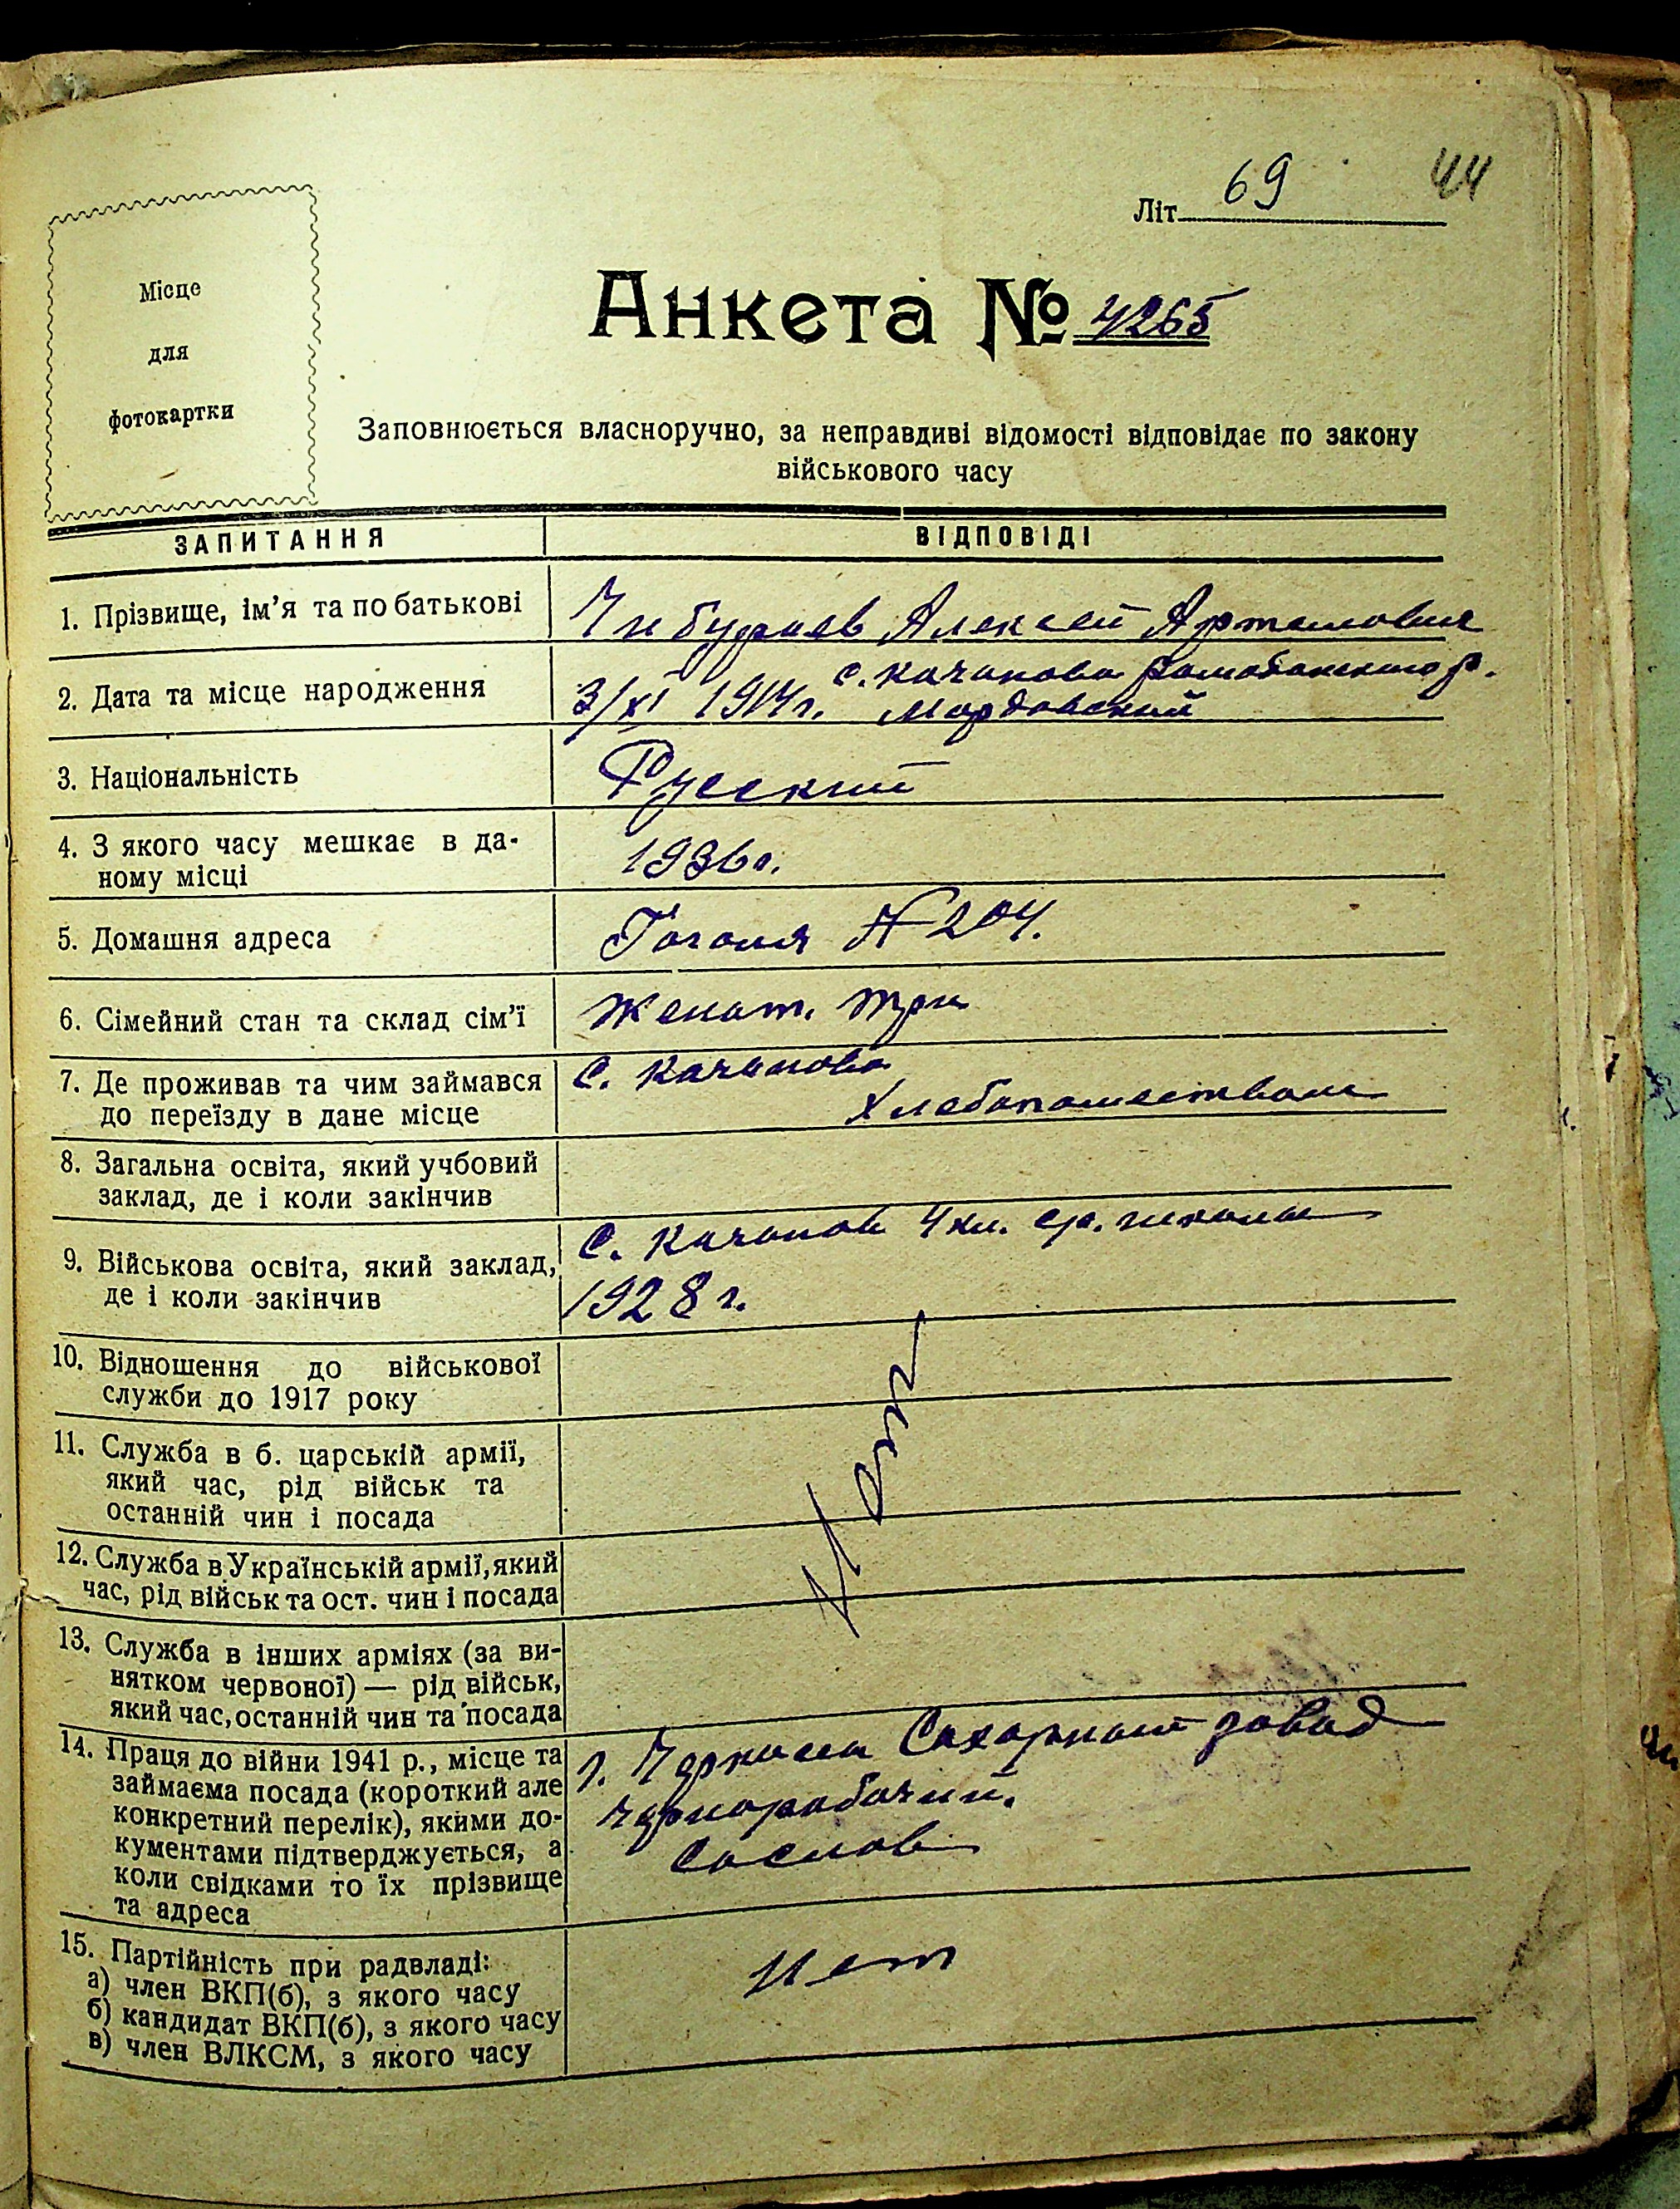 69
44
Літ
Місце
для
фотокартки
Анкета № 4265
Заповнюється власноручно, за неправдиві відомості відповідає по закону
військового часу
ЗАПИТАННЯ
ВІДПОВІДІ
1. Прізвище, ім'я та по батькові
Алексей Артемович
2. Дата та місце народження
с. Качаново р.
3/XI 1914 г. Мордовский
3. Національність
Русский
4. З якого часу мешкає в да-
ному місці
1936 г.
5. Домашня адреса
Гоголя № 204.
6. Сімейний стан та склад сім'ї
Женат. три
7. Де проживав та чим займався
до переїзду в дане місце
С. Качаново
8. Загальна освіта, який учбовий
заклад, де і коли закінчив
9. Військова освіта, який заклад,
де і коли закінчив
С. Качаново 4 кл. ср. школы
1928 г.
10. Відношення до військової
служби до 1917 року
11. Служба в б. царській армії,
який час, рід військ та
останній чин і посада
12. Служба в Українській армії, який
час, рід військ та ост. чин і посада
Нет
13. Служба в інших арміях (за ви-
нятком червоної) — рід військ,
який час, останній чин та посада
14. Праця до війни 1941 р., місце та
займаєма посада (короткий але
конкретний перелік), якими до-
кументами підтверджується, а
коли свідками то їх прізвище
та адреса
г. Черкассы Сахарный завод
чернорабочий.
15. Партійність при радвладі:
а) член ВКП(б), з якого часу
б) кандидат ВКП(б), з якого часу
в) член ВЛКСМ, з якого часу
нет